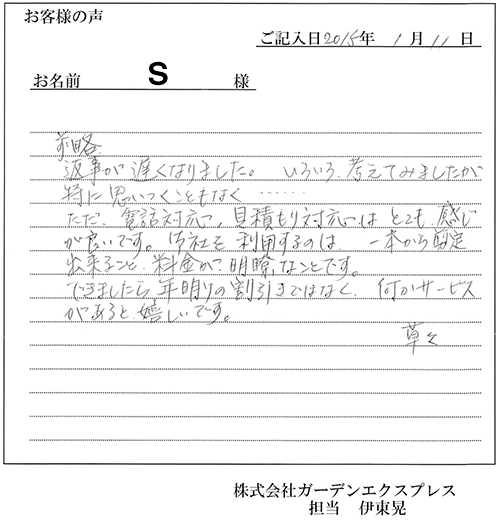 お客様の声
ご記入日2015年 1月 11日
お名前 S 様
前略
返事が遅くなりました。 いろいろ、考えてみましたが
特に思いつくこともなく ……
ただ、電話対応、見積もり対応はとても、感じ
が良いです。御社を利用するのは、一本から剪定
出来ること、料金が明瞭なことです。
できましたら年明りの割引きではなく、何かサービス
があると、嬉しいです。
草々
株式会社ガーデンエクスプレス
担当 伊東晃